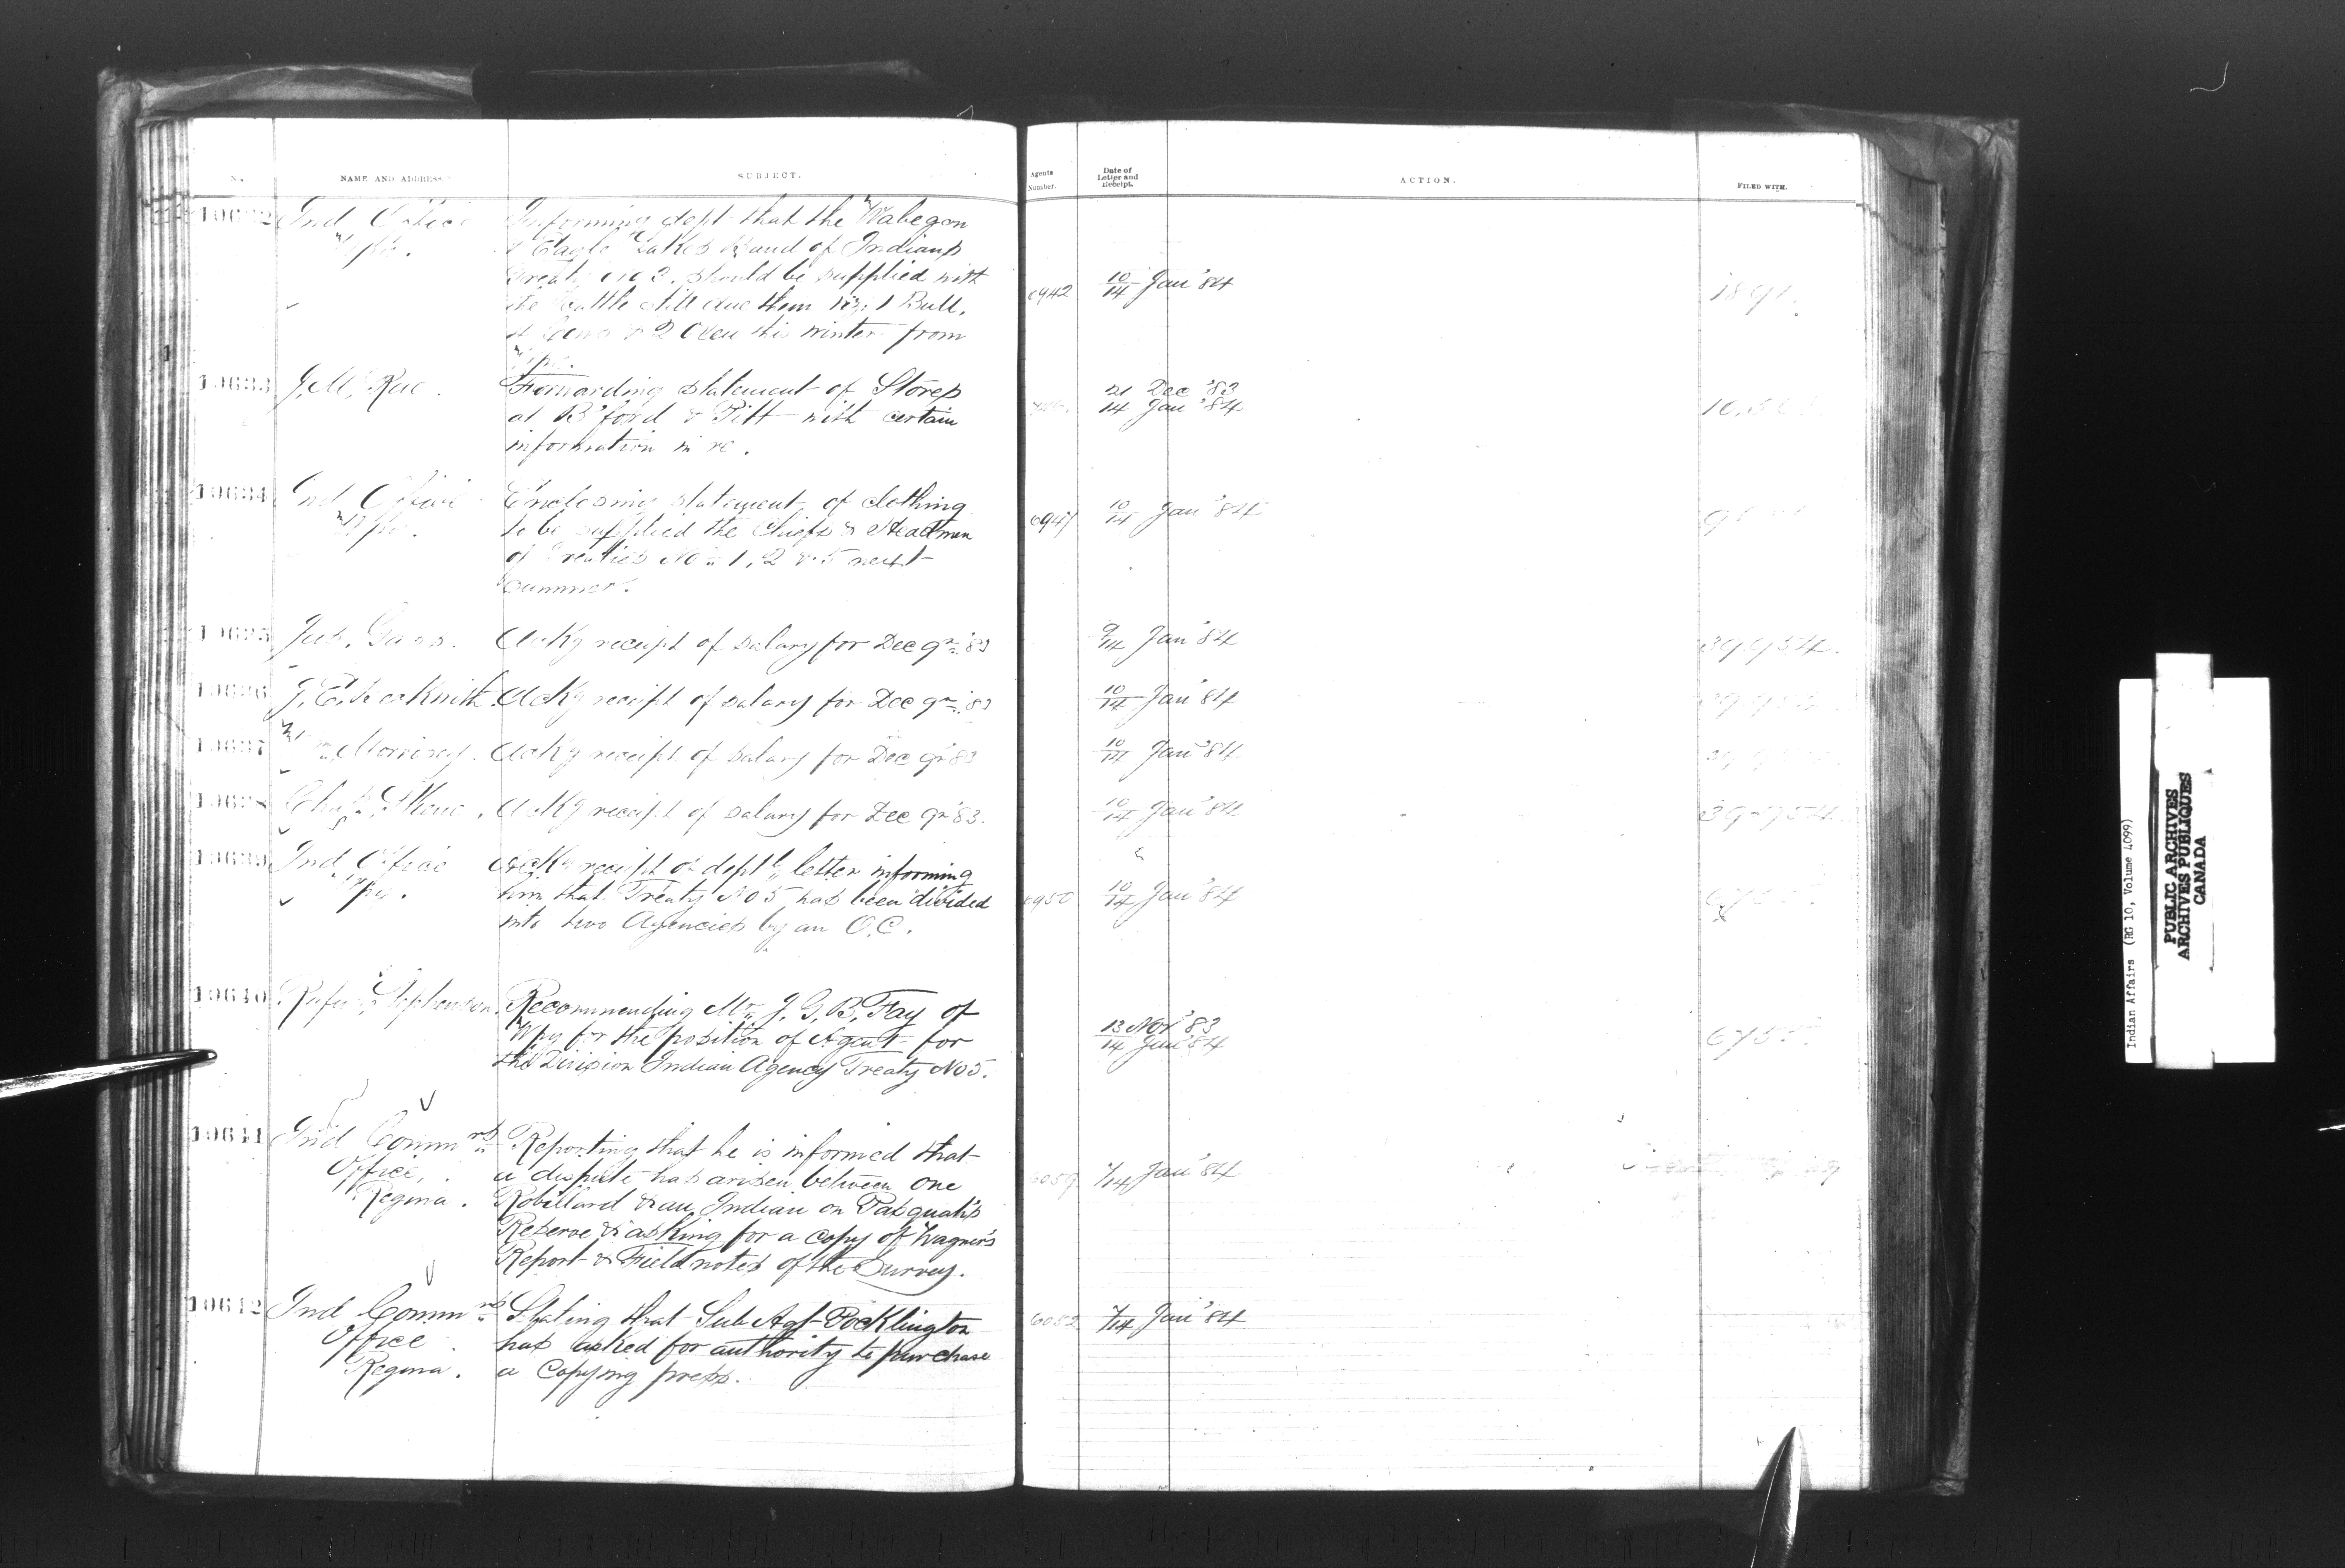 No. NAME AND ADDRESS. SUBJECT. Agents Number. Date of Letter and Receipt. ACTION. FILED WITH.
10632 Ind Office Informing dept that the Wabegon
Wpg. & Eagle Lakes Band of Indians
Treaty No 3. should be supplied with
the Cattle still due them viz; 1 Bull, 6942 10/14 Jan '84 1891.
4 Cows & 2 Oxen this winter from
Wpg.
10633 J. M. Rae. Forwarding statement of Stores 21 Dec '83
at B'ford & Pitt with certain 14 Jan '84
information in re.
10634 Ind Office Enclosing statement of clothing
Wpg. to be supplied the Chiefs & Headmen 6947 10/14 Jan '84
of Treaties Nos 1, 2 & 5 next
Summer.
10635 Jas. Gass. Ackg receipt of salary for Dec qr '83 9/14 Jan '84 39954.
10636 Ackg receipt of salary for Dec qr '83 10/14 Jan '84
10637 Wm Morrisey. Ackg receipt of salary for Dec qr '83 10/14 Jan '84
10638 Ackg receipt of salary for Dec qr '83. 10/14 Jan '84 39954.
10639 Ind Office Ackg receipt of deptl letter informing
Wpg. him that Treaty No 5 has been divided 6950 10/14 Jan '84
into two Agencies by an O.C.
10640 Rufus Stephenson. Recommending Mr. J. G. B. Fay of
Wpg for the position of Agent for 13 Nov '83
the Division Indian Agency Treaty No 5. 14 Jan '84
10641 Ind Commrs Reporting that he is informed that
Office, a dispute has arisen between one 7/14 Jan '84
Regina. Robillard & an Indian on Pasquah's
Reserve & asking for a copy of Wagner's
Report & Field notes of the Survey.
10642 Ind Commrs Stating that Sub Agt Pocklington 7/14 Jan '84
Office has asked for authority to purchase
Regina. a copying press.
Indian Affairs (RG 10, Volume 4099)
PUBLIC ARCHIVES
ARCHIVES PUBLIQUES
CANADA